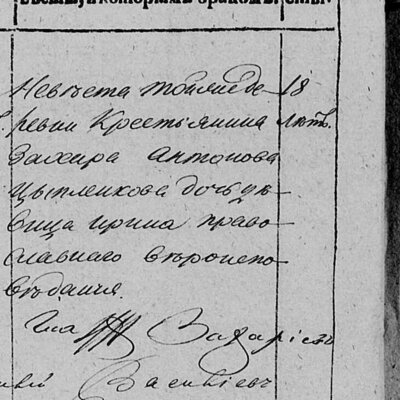 Невѣста той же де- 18
ревни Крестьянина лѣтъ.
Захира Антонова
Цыпленкова дочь дѣ-
вица Ирина право-
славнаго вѣроиспо-
вѣданія.
Захаріевъ
Василіевъ